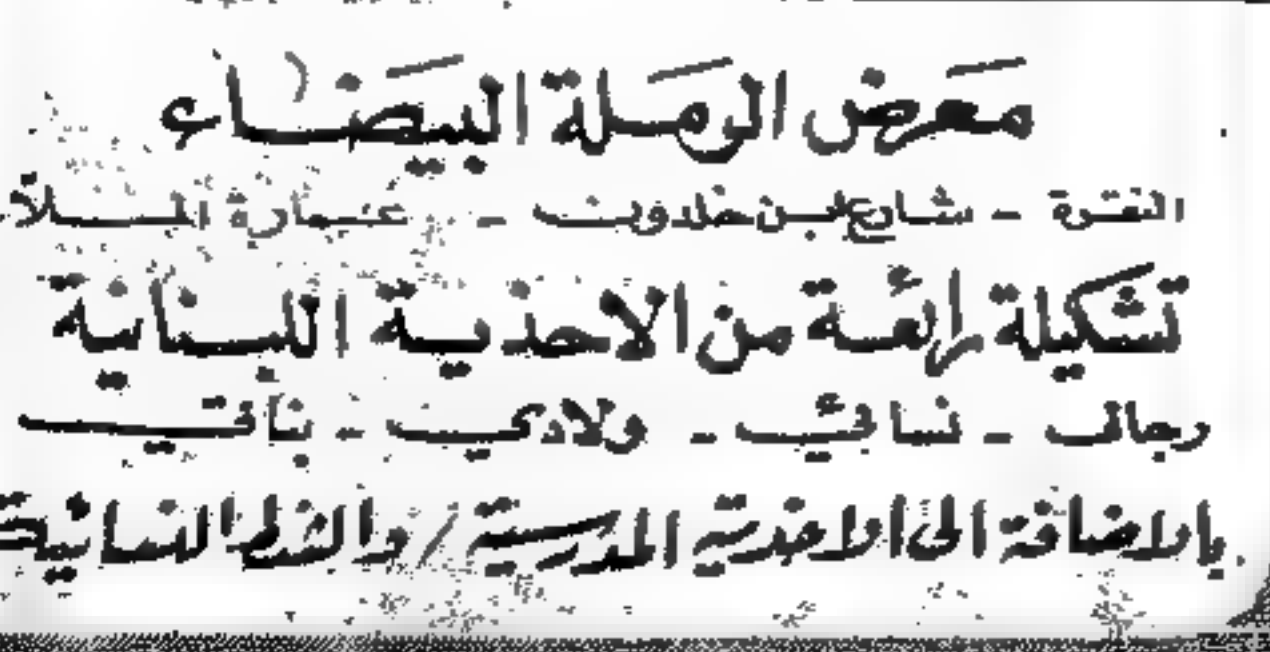 معرض الرملة البيضاء
النقرة - شارع ابن خلدون - عمارة الملا
تشكيلة رائعة من الاحذية اللبنانية
رجالي - نسائي - ولادي - بناتي
بالاضافة الى الاحذية المدرسية / والشنط النسائية